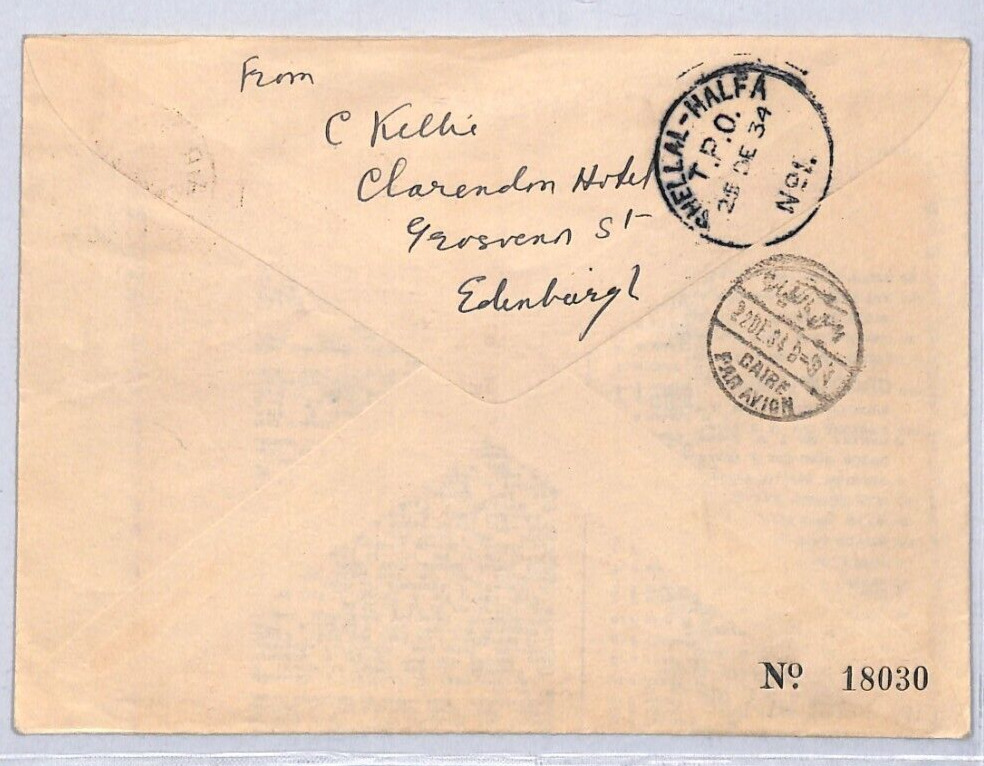 From
C Kellie
Clarendon Hotel
Grosvenor St
Edenburgh
SHELLAL-HALFA
T.P.O.
28 DE 34
No1.
DE.34
CAIRE
PAR AVION
No 18030